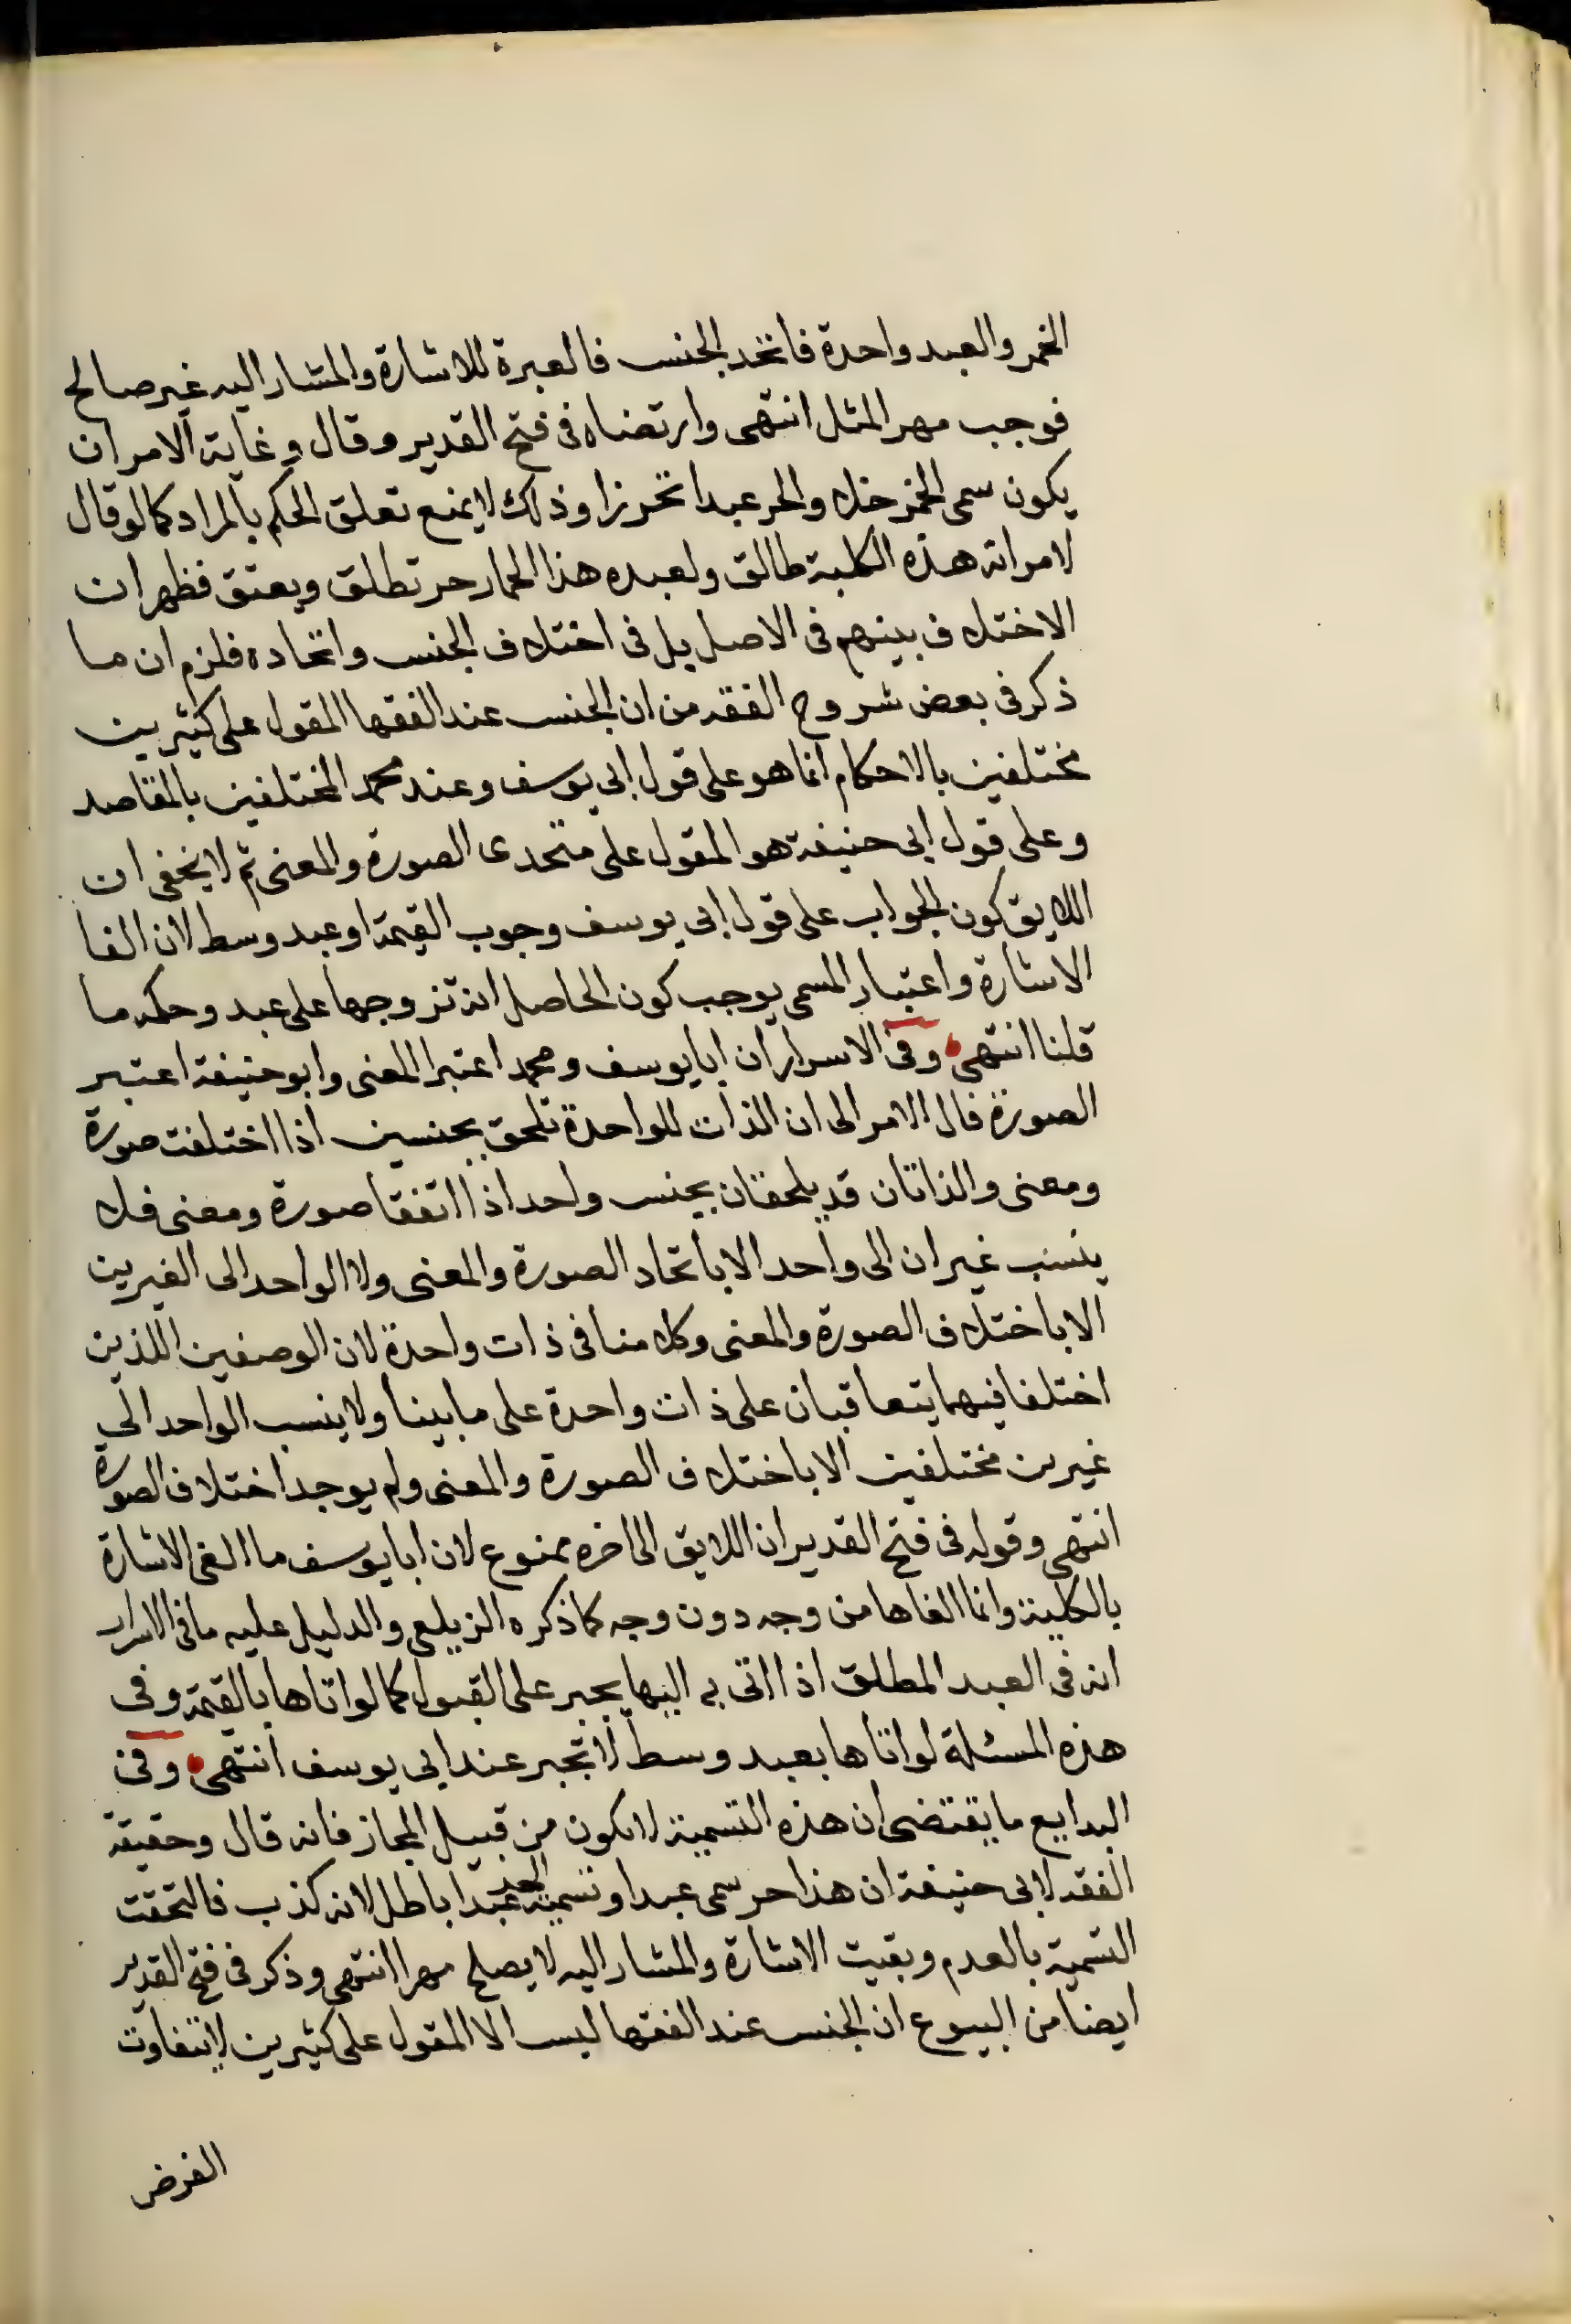 الخمر والعبد واحدة فاتحد الجنس فالعبرة للاشارة والمشار اليه غير صالح
فوجب مهر المثل انتهى وارتضاه فى فتح القدير وقال وغاية الامر ان
يكون سمى الخمر خلا والحر عبدا تحرزا وذلك لا يمنع تعلق الحكم بالمراد كما لو قال
لامراته هذه الكلبة طالق ولعبده هذا الحمار حر تطلق ويعتق فظهر ان
الاختلاف بينهم فى الاصل بل فى اختلاف الجنس واتحاده فلزم ان ما
ذكر فى بعض شروح الفقه من ان الجنس عند الفقها المقول على كثيرين
مختلفين بالاحكام انما هو على قول ابى يوسف وعند محمد المختلفين بالمقاصد
وعلى قول ابى حنيفة هو المقول على متحدى الصورة والمعنى ثم لا يخفى ان
اللايق كون الجواب على قول ابى يوسف وجوب القيمة او عبد وسط لان الغا
الاشارة واعتبار المسمى يوجب كون الحاصل انه تزوجها على عبد وحكمه ما
قلنا انتهى وفى الاسرار ان ابا يوسف ومحمد اعتبرا المعنى وابو حنيفة اعتبر
الصورة فال الامر الى ان الذات للواحدة تلحق بجنسين اذا اختلفت صورة
ومعنى والذاتان قد يلحقان بجنس واحد اذا اتفقا صورة ومعنى فلا
ينسب غيران الى واحد الا باتحاد الصورة والمعنى ولا الواحد الى الغيرين
الا باختلاف الصورة والمعنى وكلامنا فى ذات واحدة لان الوصفين اللذين
اختلفا فيهما يتعاقبان على ذات واحدة على ما بينا ولا ينسب الواحد الى
غيرين مختلفين الا باختلاف الصورة والمعنى ولم يوجد اختلاف الصورة
انتهى وقوله فى فتح القدير ان اللايق الى اخره ممنوع لان ابا يوسف ما الغى الاشارة
بالكلية وانما الغاها من وجه دون وجه كما ذكره الزيلعى والدليل عليه ما فى الاسرار
انه فى العبد المطلق اذا اتى به اليها يجبر على القبول كما لو اتاها بالقيمة وفى
هذه المسئلة لو اتاها بعبد وسط لا تجبر عند ابى يوسف انتهى وفى
البدايع ما يقتضى ان هذه التسمية لا يكون من قبيل المجاز فانه قال وحقيقة
الفقه لابى حنيفة ان هذا حر سمى عبدا وتسمية الحر عبدا باطل لانه كذب فالتحقت
التسمية بالعدم وبقيت الاشارة والمشار اليه لا يصلح مهرا انتهى وذكر فى فتح القدير
ايضا من البيوع ان الجنس عند الفقها ليس الا المقول على كثيرين لا يتفاوت
الغرض